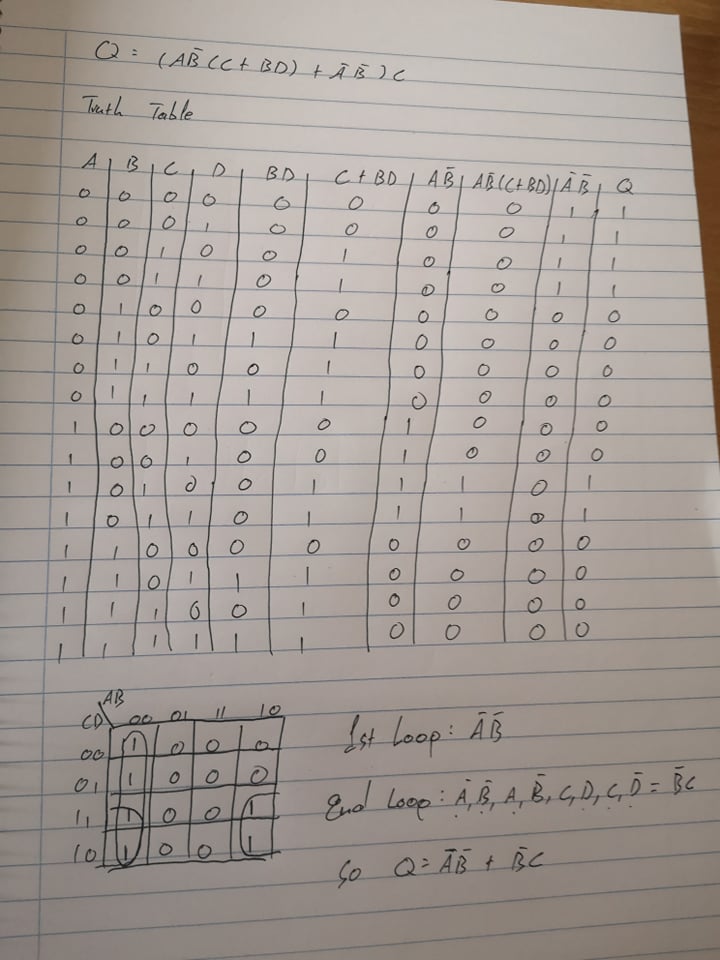 Q = (AB̄(C + BD) + ĀB̄)C
Truth Table
A B C D BD C + BD AB̄ AB̄(C+BD) ĀB̄ Q
0 0 0 0 0 0 0 0 1 1
0 0 0 1 0 0 0 0 1 1
0 0 1 0 0 1 0 0 1 1
0 0 1 1 0 1 0 0 1 1
0 1 0 0 0 0 0 0 0 0
0 1 0 1 1 1 0 0 0 0
0 1 1 0 0 1 0 0 0 0
0 1 1 1 1 1 0 0 0 0
1 0 0 0 0 0 1 0 0 0
1 0 0 1 0 0 1 0 0 0
1 0 1 0 0 1 1 1 0 1
1 0 1 1 0 1 1 1 0 1
1 1 0 0 0 0 0 0 0 0
1 1 0 1 1 1 0 0 0 0
1 1 1 0 0 1 0 0 0 0
1 1 1 1 1 1 0 0 0 0
AB
CD 00 01 11 10
00 1 0 0 0
01 1 0 0 0
11 1 0 0 1
10 1 0 0 1
1st Loop: ĀB̄
End Loop: Ā,B̄,A,B̄,C,D,C,D̄ = B̄C
So Q = ĀB̄ + B̄C